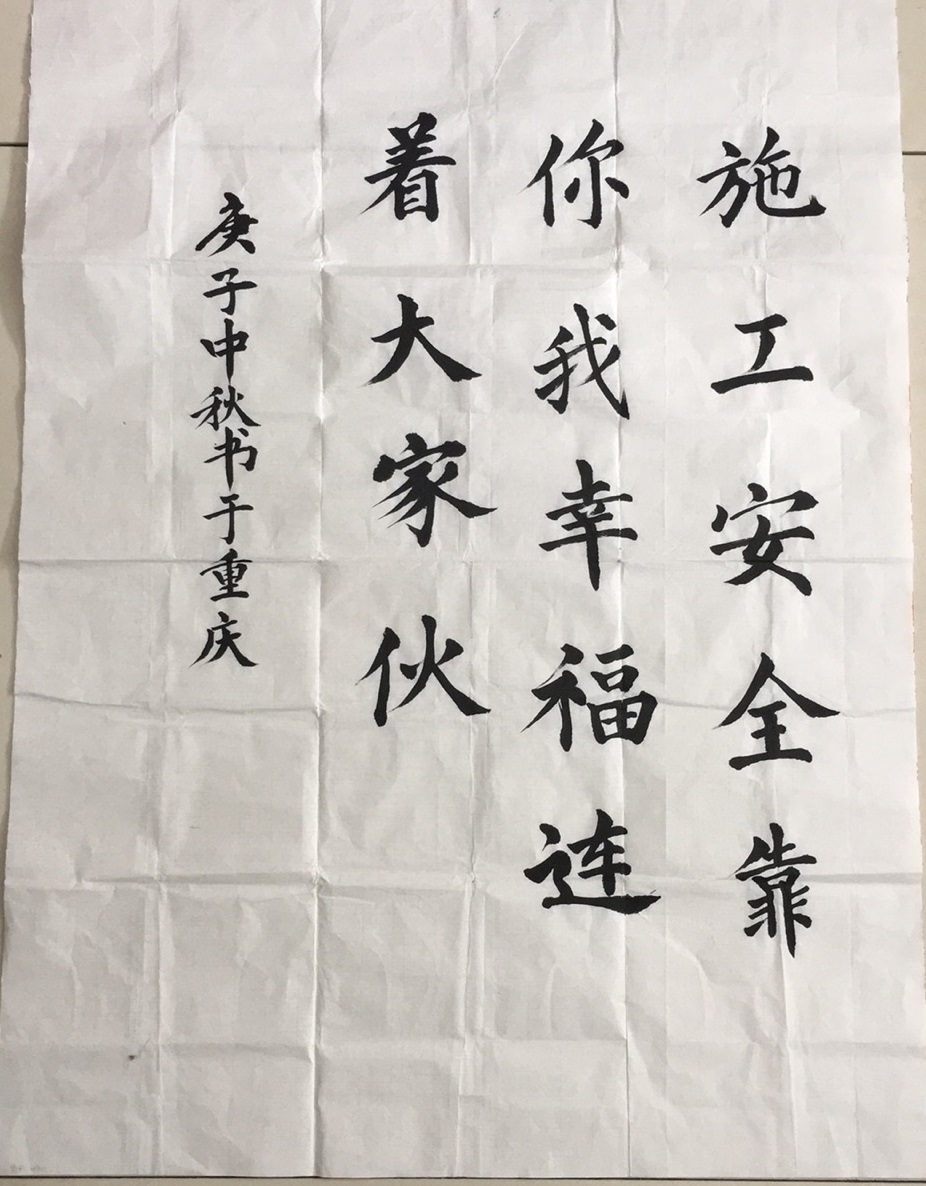 施工安全靠
你我幸福连
着大家伙
庚子中秋书于重庆